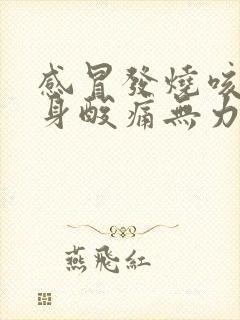 感冒發燒咳
身酸痛無力
燕飛紅